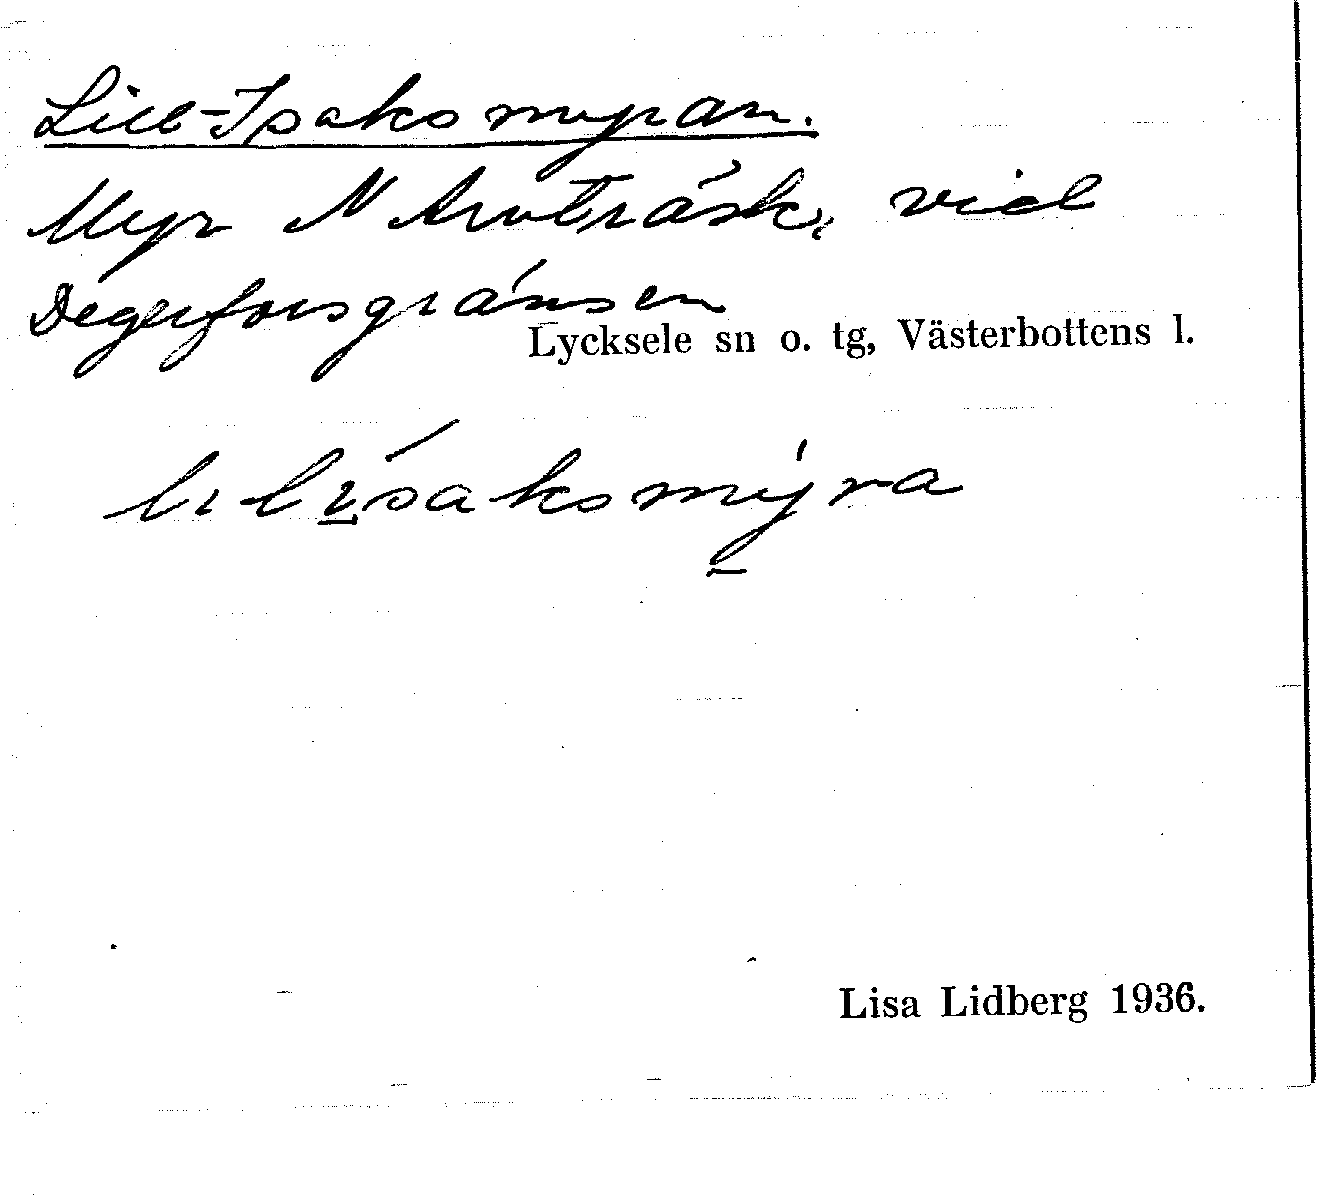 Lill-Isaksmyran.
Myr N Arvträsk, vid
Degerforsgränsen
Lycksele sn o. tg, Västerbottens l.
lılısaksmýra
Lisa Lidberg 1936.